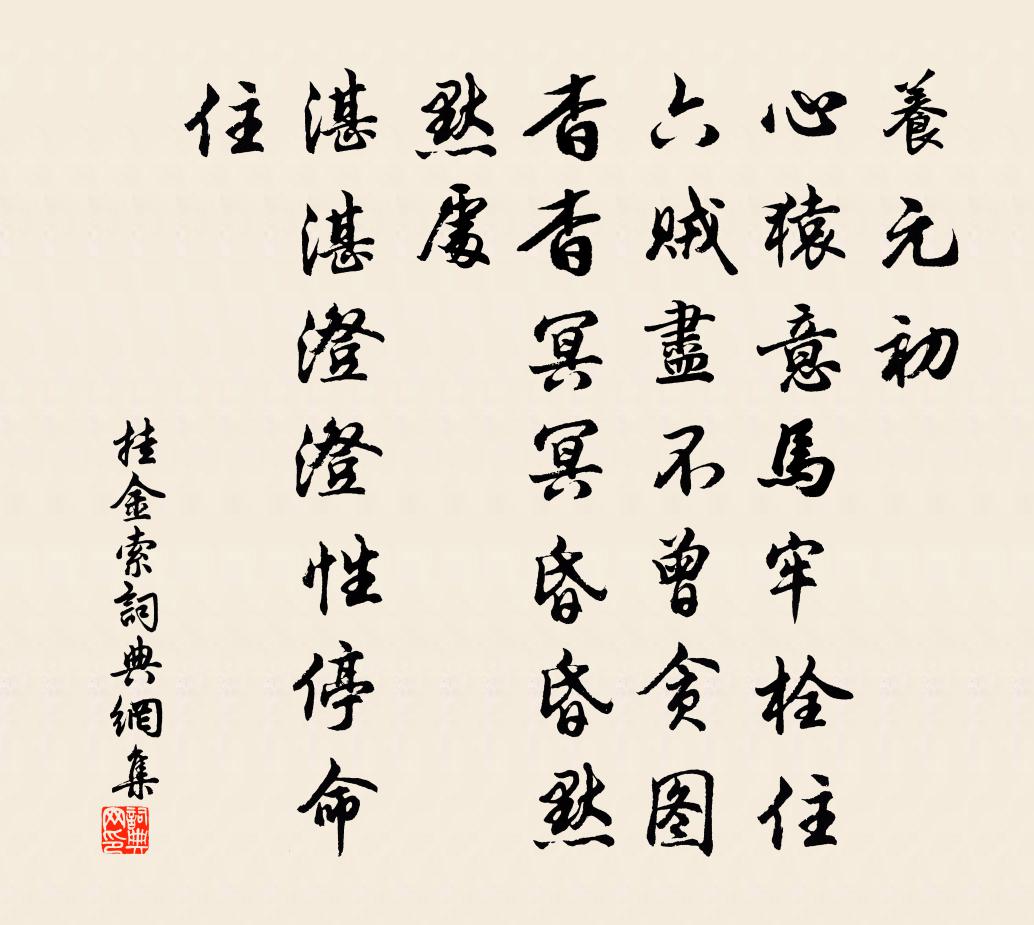 養元初
心猿意馬牢栓住
六賊盡不曾貪图
杳杳冥冥昏昏默
默處
湛湛澄澄性停命
住
挂金索詞典網集
詞典
网印